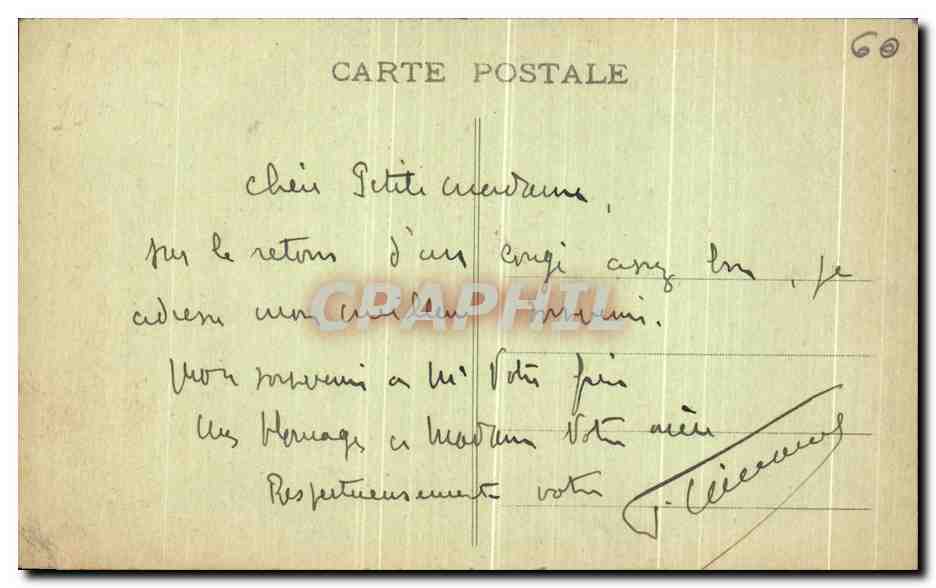 60
CARTE POSTALE
Chère Petite madame,
sur le retour d'un congé assez bon, je
adresse mon meilleur souvenir.
CPAPHIL
Mon souvenir a Mr Votre frère
Mes Homages a Madame Votre mère
Respectueusement votre